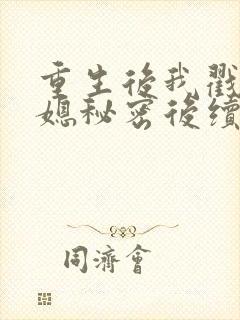 重生後我戳
媳秘密後續
同濟會